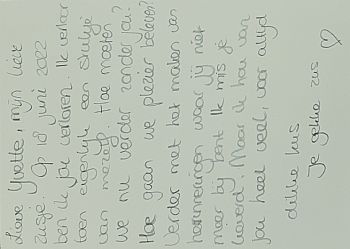 Lieve Yvette, mijn lieve
zusje. Op 18 juni 2022
ben ik jou verloren. Ik verloor
toen eigenlijk een stukje
van mezelf. Hoe moeten
we nu verder zonder jou?
Hoe gaan we plezier beleven?
Verder met het maken van
herinneringen waar jij niet
meer bij bent. Ik mis je
Maar ik hou van
jou heel veel, voor altijd
dikke kus
Je gekke zus